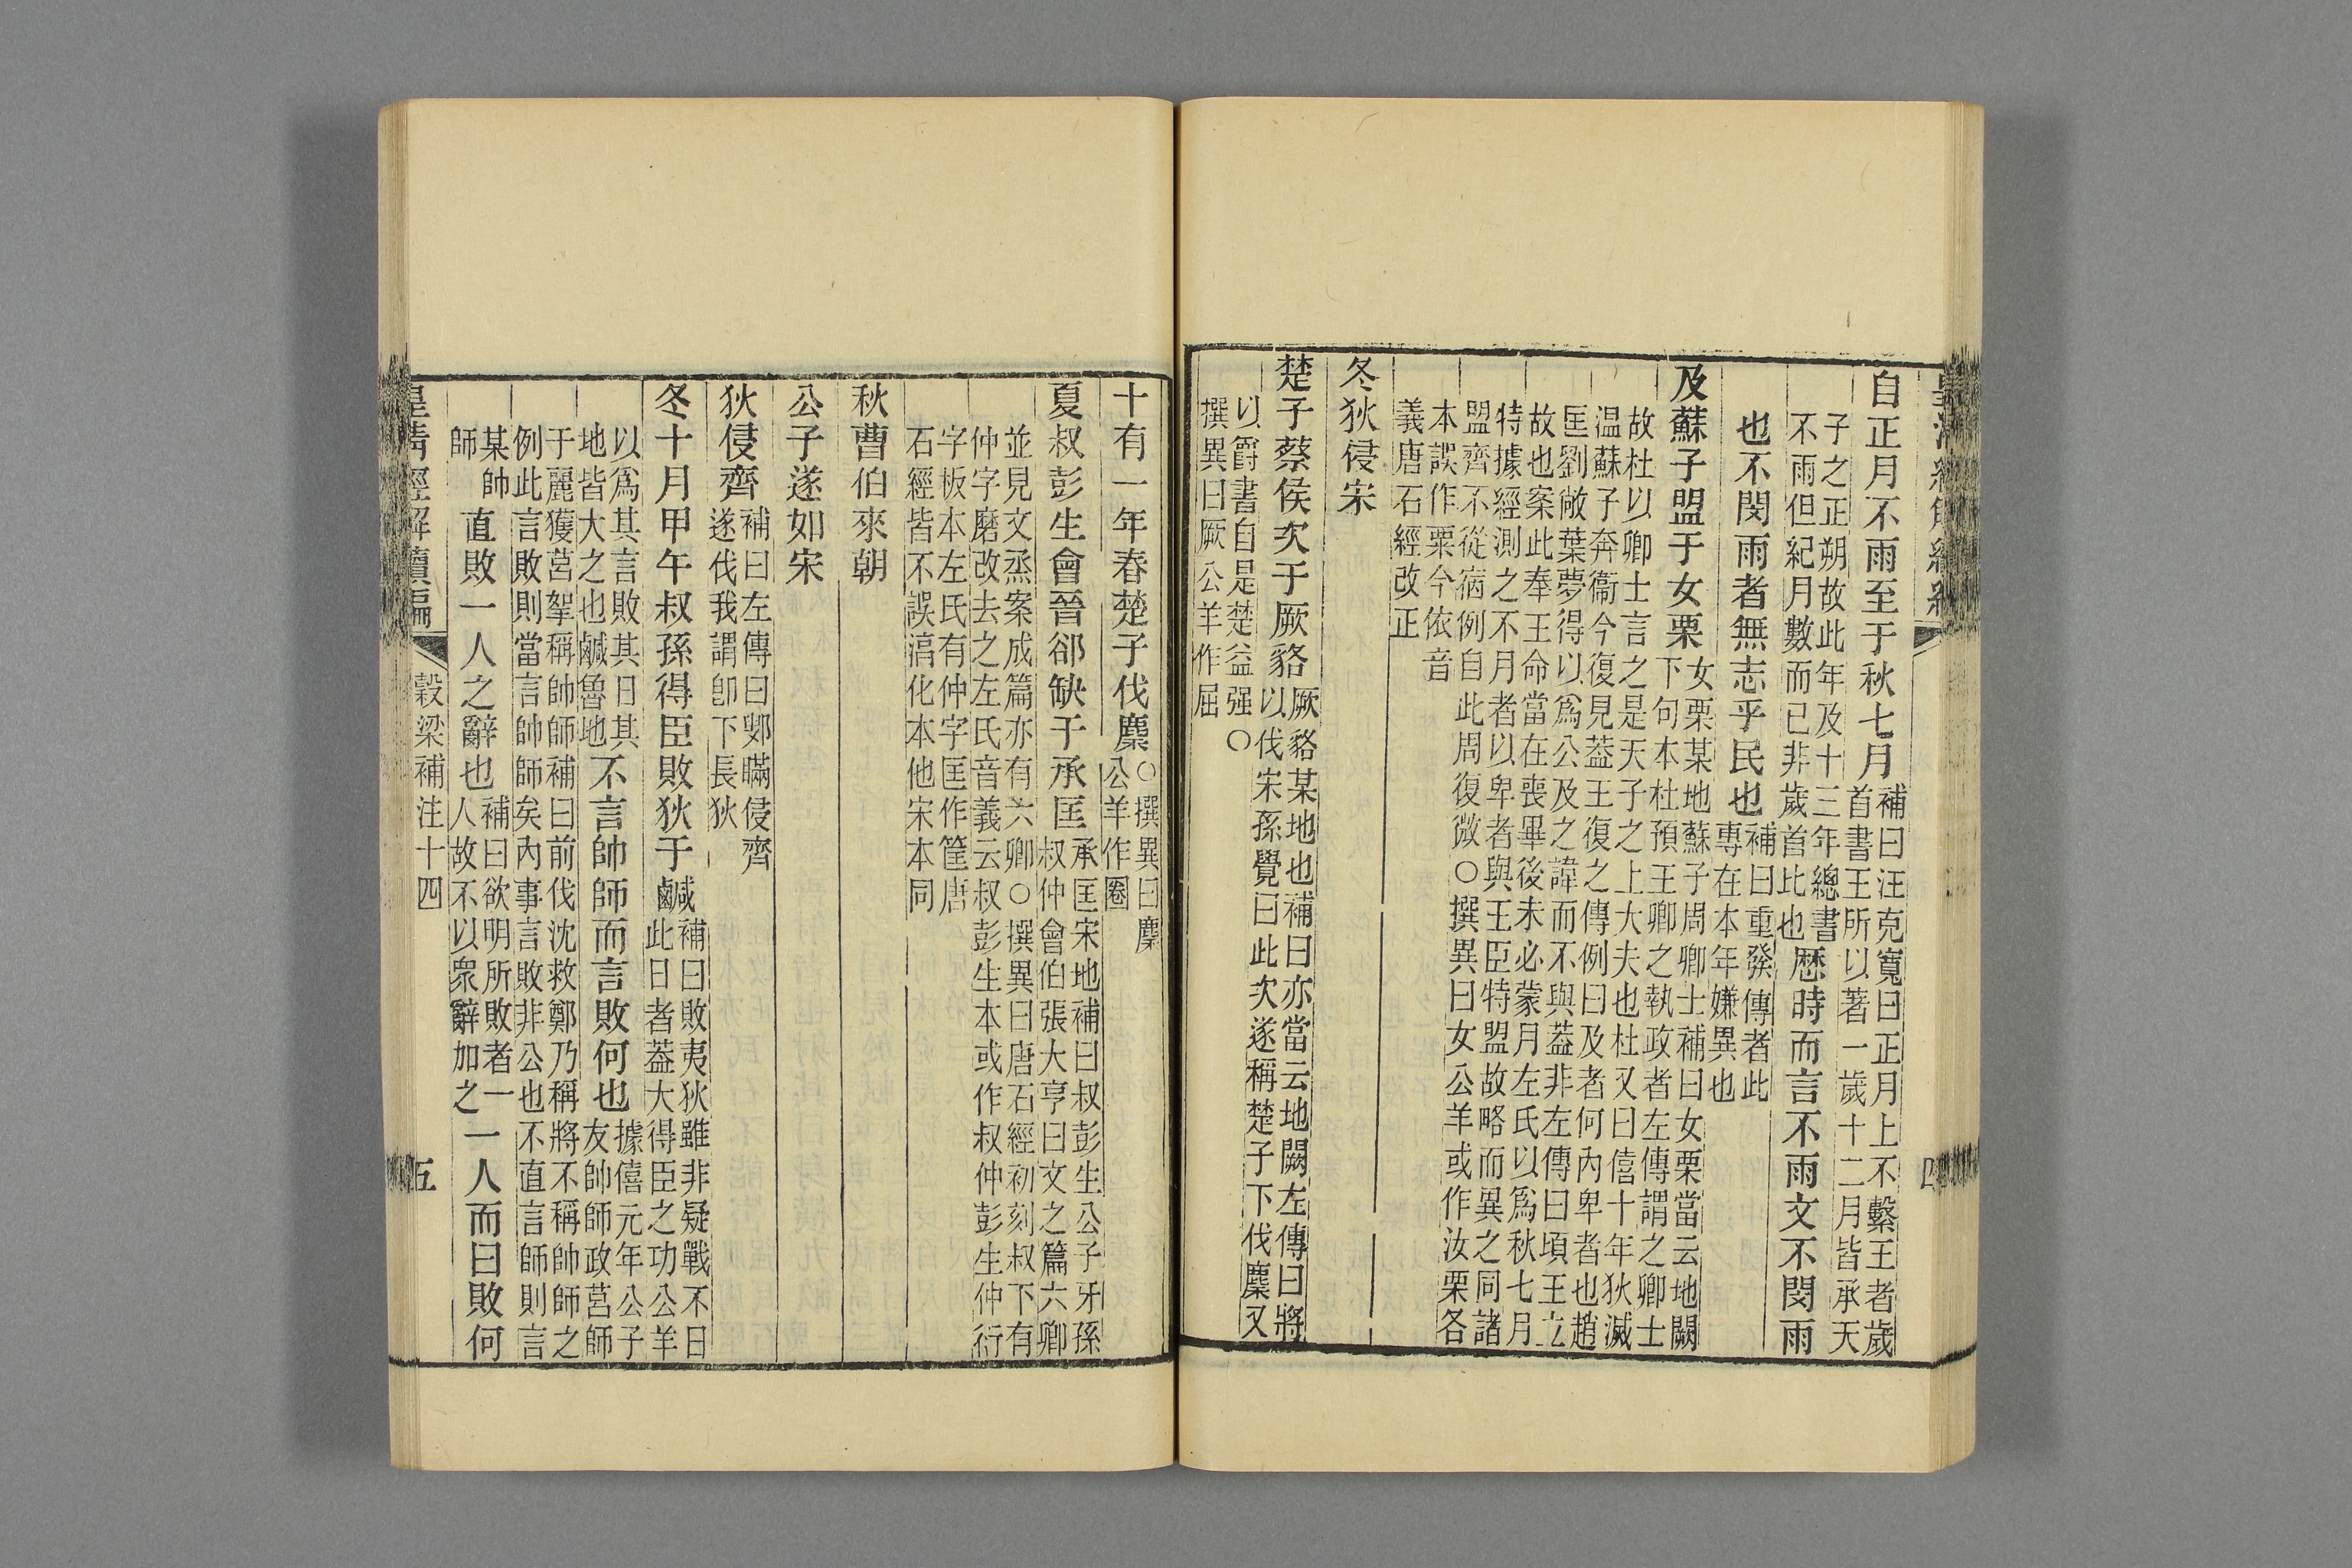 皇清經解續編
四
自正月不雨至于秋七月補曰汪克寬曰正月上不繫王者歲
首書王所以著一歲十二月皆承天
子之正朔故此年及十三年總書
不雨但紀月數而已非歲首此也歷時而言不雨文不閔雨
也不閔雨者無志乎民也補曰重發傳者此
專在本年嫌異也
及蘇子盟于女栗女栗某地蘇子周卿士補曰女栗當云地闕
下句本杜預王卿之執政者左傳謂之卿士
故杜以卿士言之是天子之上大夫也杜又曰僖十年狄滅
温蘇子奔衞今復見葢王復之傳例曰及者何內卑者也趙
匡劉敞葉夢得以爲公及之諱而不與葢非左傳曰頃王立
故也案此奉王命當在喪畢後未必蒙月左氏以爲秋七月
特據經測之不月者以卑者與王臣特盟故略而異之同諸
盟齊不從宿例自此周復微○撰異曰女公羊或作汝栗各
本誤作粟今依音
義唐石經改正
冬狄侵宋
楚子蔡侯次于厥貉厥貉某地也補曰亦當云地闕左傳曰將
以伐宋孫覺曰此次遂稱楚子下伐麇又
以爵書自是楚益强○
撰異曰厥公羊作屈
十有一年春楚子伐麇○撰異曰麇
公羊作圈
夏叔彭生會晉郤缺于承匡承匡宋地補曰叔彭生公子牙孫
叔仲會伯張大亨曰文之篇六卿
並見文烝案成篇亦有六卿○撰異曰唐石經初刻叔下有
仲字磨改去之左氏音義云叔彭生本或作叔仲彭生仲衍
字板本左氏有仲字匡作筐唐
石經皆不誤滈化本他宋本同
秋曹伯來朝
公子遂如宋
狄侵齊補曰左傳曰鄋瞞侵齊
遂伐我謂卽下長狄
冬十月甲午叔孫得臣敗狄于鹹補曰敗夷狄雖非疑戰不日
此日者葢大得臣之功公羊
以爲其言敗其日其
地皆大之也鹹魯地不言帥師而言敗何也據僖元年公子
友帥師敗莒師
于麗獲莒挐稱帥師補曰前伐沈救鄭乃稱將不稱帥師之
例此言敗則當言帥師矣內事言敗非公也不直言師則言
某帥
師直敗一人之辭也補曰欲明所敗者一
人故不以衆辭加之一人而曰敗何
皇清經解續編
穀梁補注十四
五